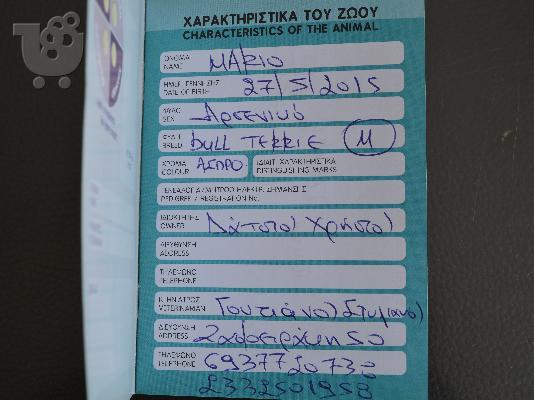 ΧΑΡΑΚΤΗΡΙΣΤΙΚΑ ΤΟΥ ΖΩΟΥ
CHARACTERISTICS OF THE ANIMAL
ΟΝΟΜΑ
NAME
ΜΑΡΙΟ
ΗΜΕΡ. ΓΕΝΝΗΣΗΣ
DATE OF BIRTH
27/5/2015
ΦΥΛΟ
SEX
Αρσενικό
ΦΥΛΗ
BREED
bull TERRIE M
ΧΡΩΜΑ
COLOUR
ΑΣΠΡΟ
ΙΔΙΑΙΤ. ΧΑΡΑΚΤΗΡΙΣΤΙΚΑ
DISTINGUISHING MARKS
PEDIGREE / REGISTRATION No.
ΙΔΙΟΚΤΗΤΗΣ
OWNER
Χρήστος
ΔΙΕΥΘΥΝΣΗ
ADDRESS
ΤΗΛΕΦΩΝΟ
TELEPHONE
ΚΤΗΝΙΑΤΡΟΣ
VETERINARIAN
ΔΙΕΥΘΥΝΣΗ
ADDRESS
ΤΗΛΕΦΩΝΟ
TELEPHONE
6937720738
2332501958